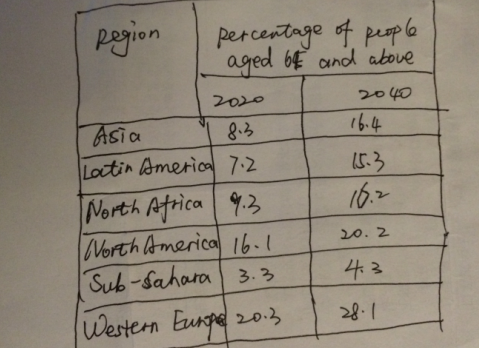 Region
Percentage of people
aged 65 and above
2020 2040
Asia 8.3 16.4
Latin America 7.2 15.3
North Africa 9.3 16.2
North America 16.1 20.2
Sub-Sahara 3.3 4.3
Western Europe 20.3 28.1